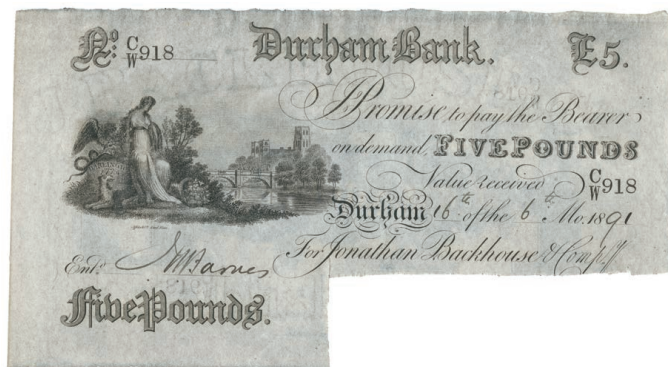 No. C/W 918 Durham Bank. £5.
I Promise to pay the Bearer
on demand, FIVE POUNDS
Value received C/W 918
Durham 16th of the 6th Mo. 1891
For Jonathan Backhouse & Compy
Entd. Barnes
Five Pounds.